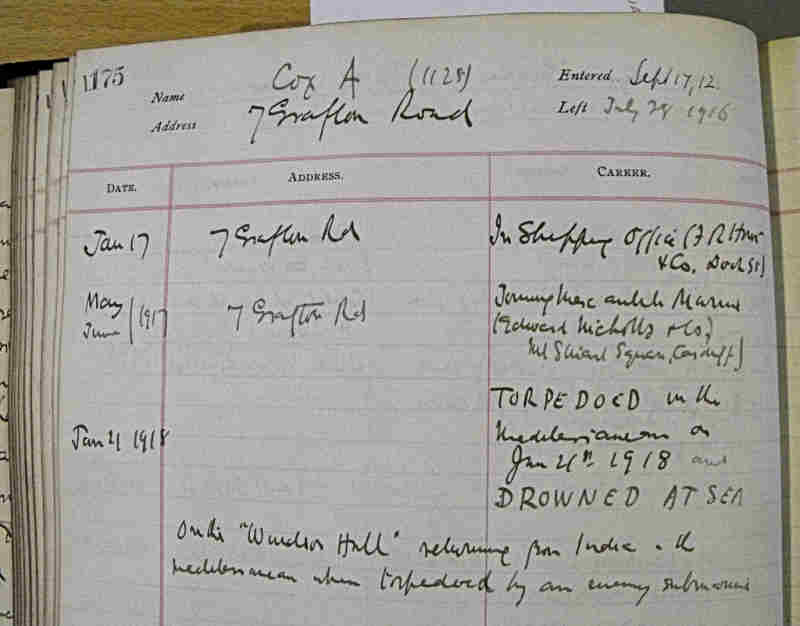 1175
Name Cox A (1128) Entered Sept 17, 12.
Address 7 Grafton Road Left July 28 1916
DATE. ADDRESS. CAREER.
Jan 17 7 Grafton Rd In Shipping Office (F R
& Co, Dock St)
May
June 1917 7 Grafton Rd Joining Mercantile Marine
(Edward Nicholls & Co,
Mt Stuart Square, Cardiff)
TORPEDOED in the
Jan 21 1918 Mediterranean on
Jan 21st 1918 and
DROWNED AT SEA
On the "Windsor Hall" returning from India in the
Mediterranean when torpedoed by an enemy submarine